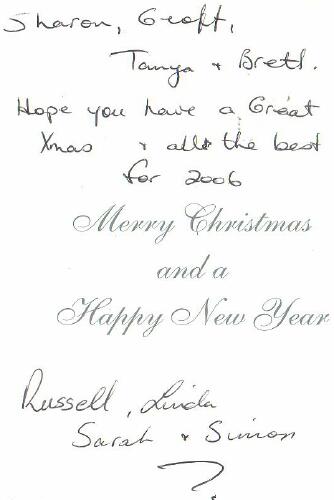 Sharon, Geoff,
Tanya + Brett.
Hope you have a Great
Xmas + all the best
for 2006
Merry Christmas
and a
Happy New Year
Russell, Linda
Sarah + Simon